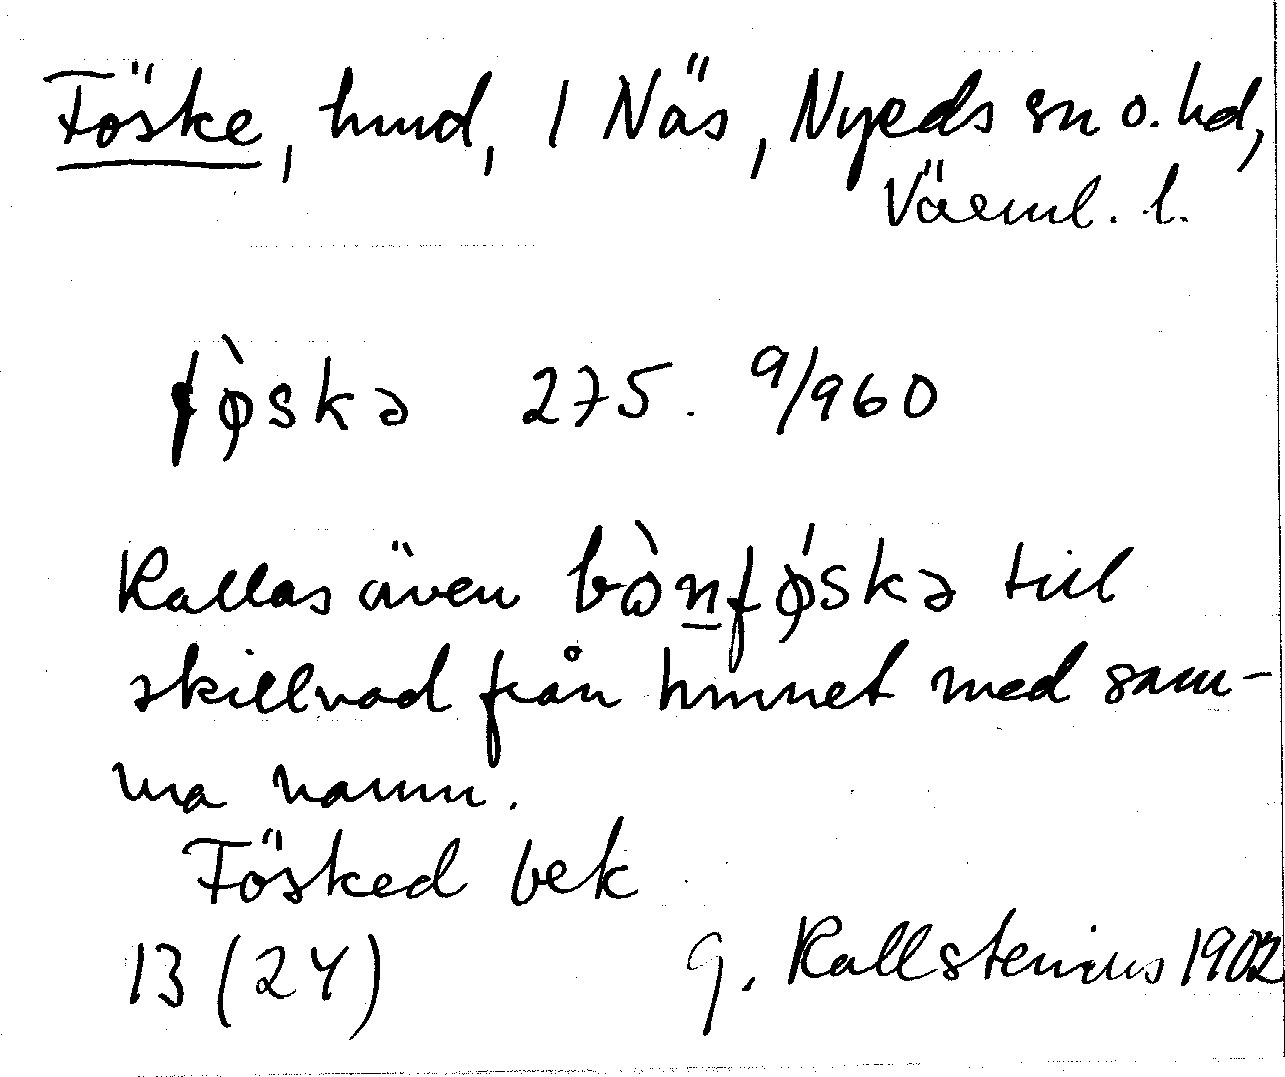 Föske, hmd, 1 Näs, Nyeds sn o. hd,
Värml. l.
fø̀skə 275. 9/960
Kallas även bònføskə till
skillnad från hmnet med sam-
ma namn.
Fösked bek
13 (24) G. Kallstenius 1902